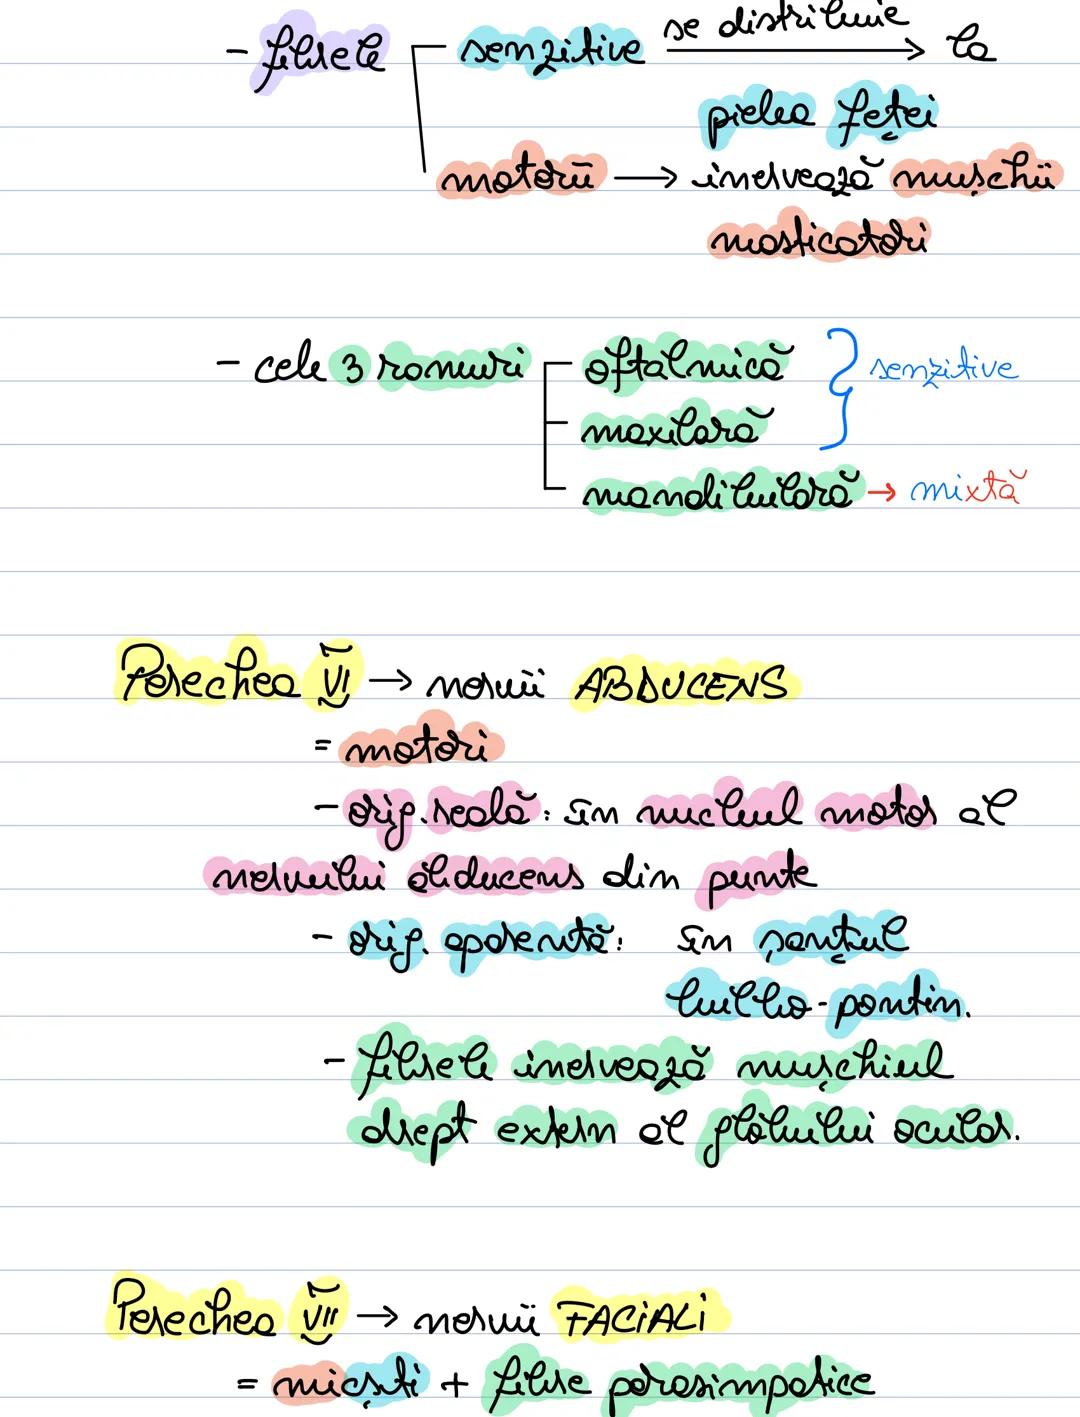 - fibrele senzitive se distribuie la
pielea feței
motorii → inervează mușchii
masticatori
- cele 3 ramuri oftalmică } senzitive
maxilară
mandibulară → mixtă
Perechea VI → nervii ABDUCENS
= motori
- orig. reală: în nucleul motor al
nervului abducens din punte
- orig. aparentă: în șanțul
bulbo-pontin.
- fibrele inervează mușchiul
drept extern al globului ocular.
Perechea VII → nervii FACIALI
= micști + fibre parasimpatice